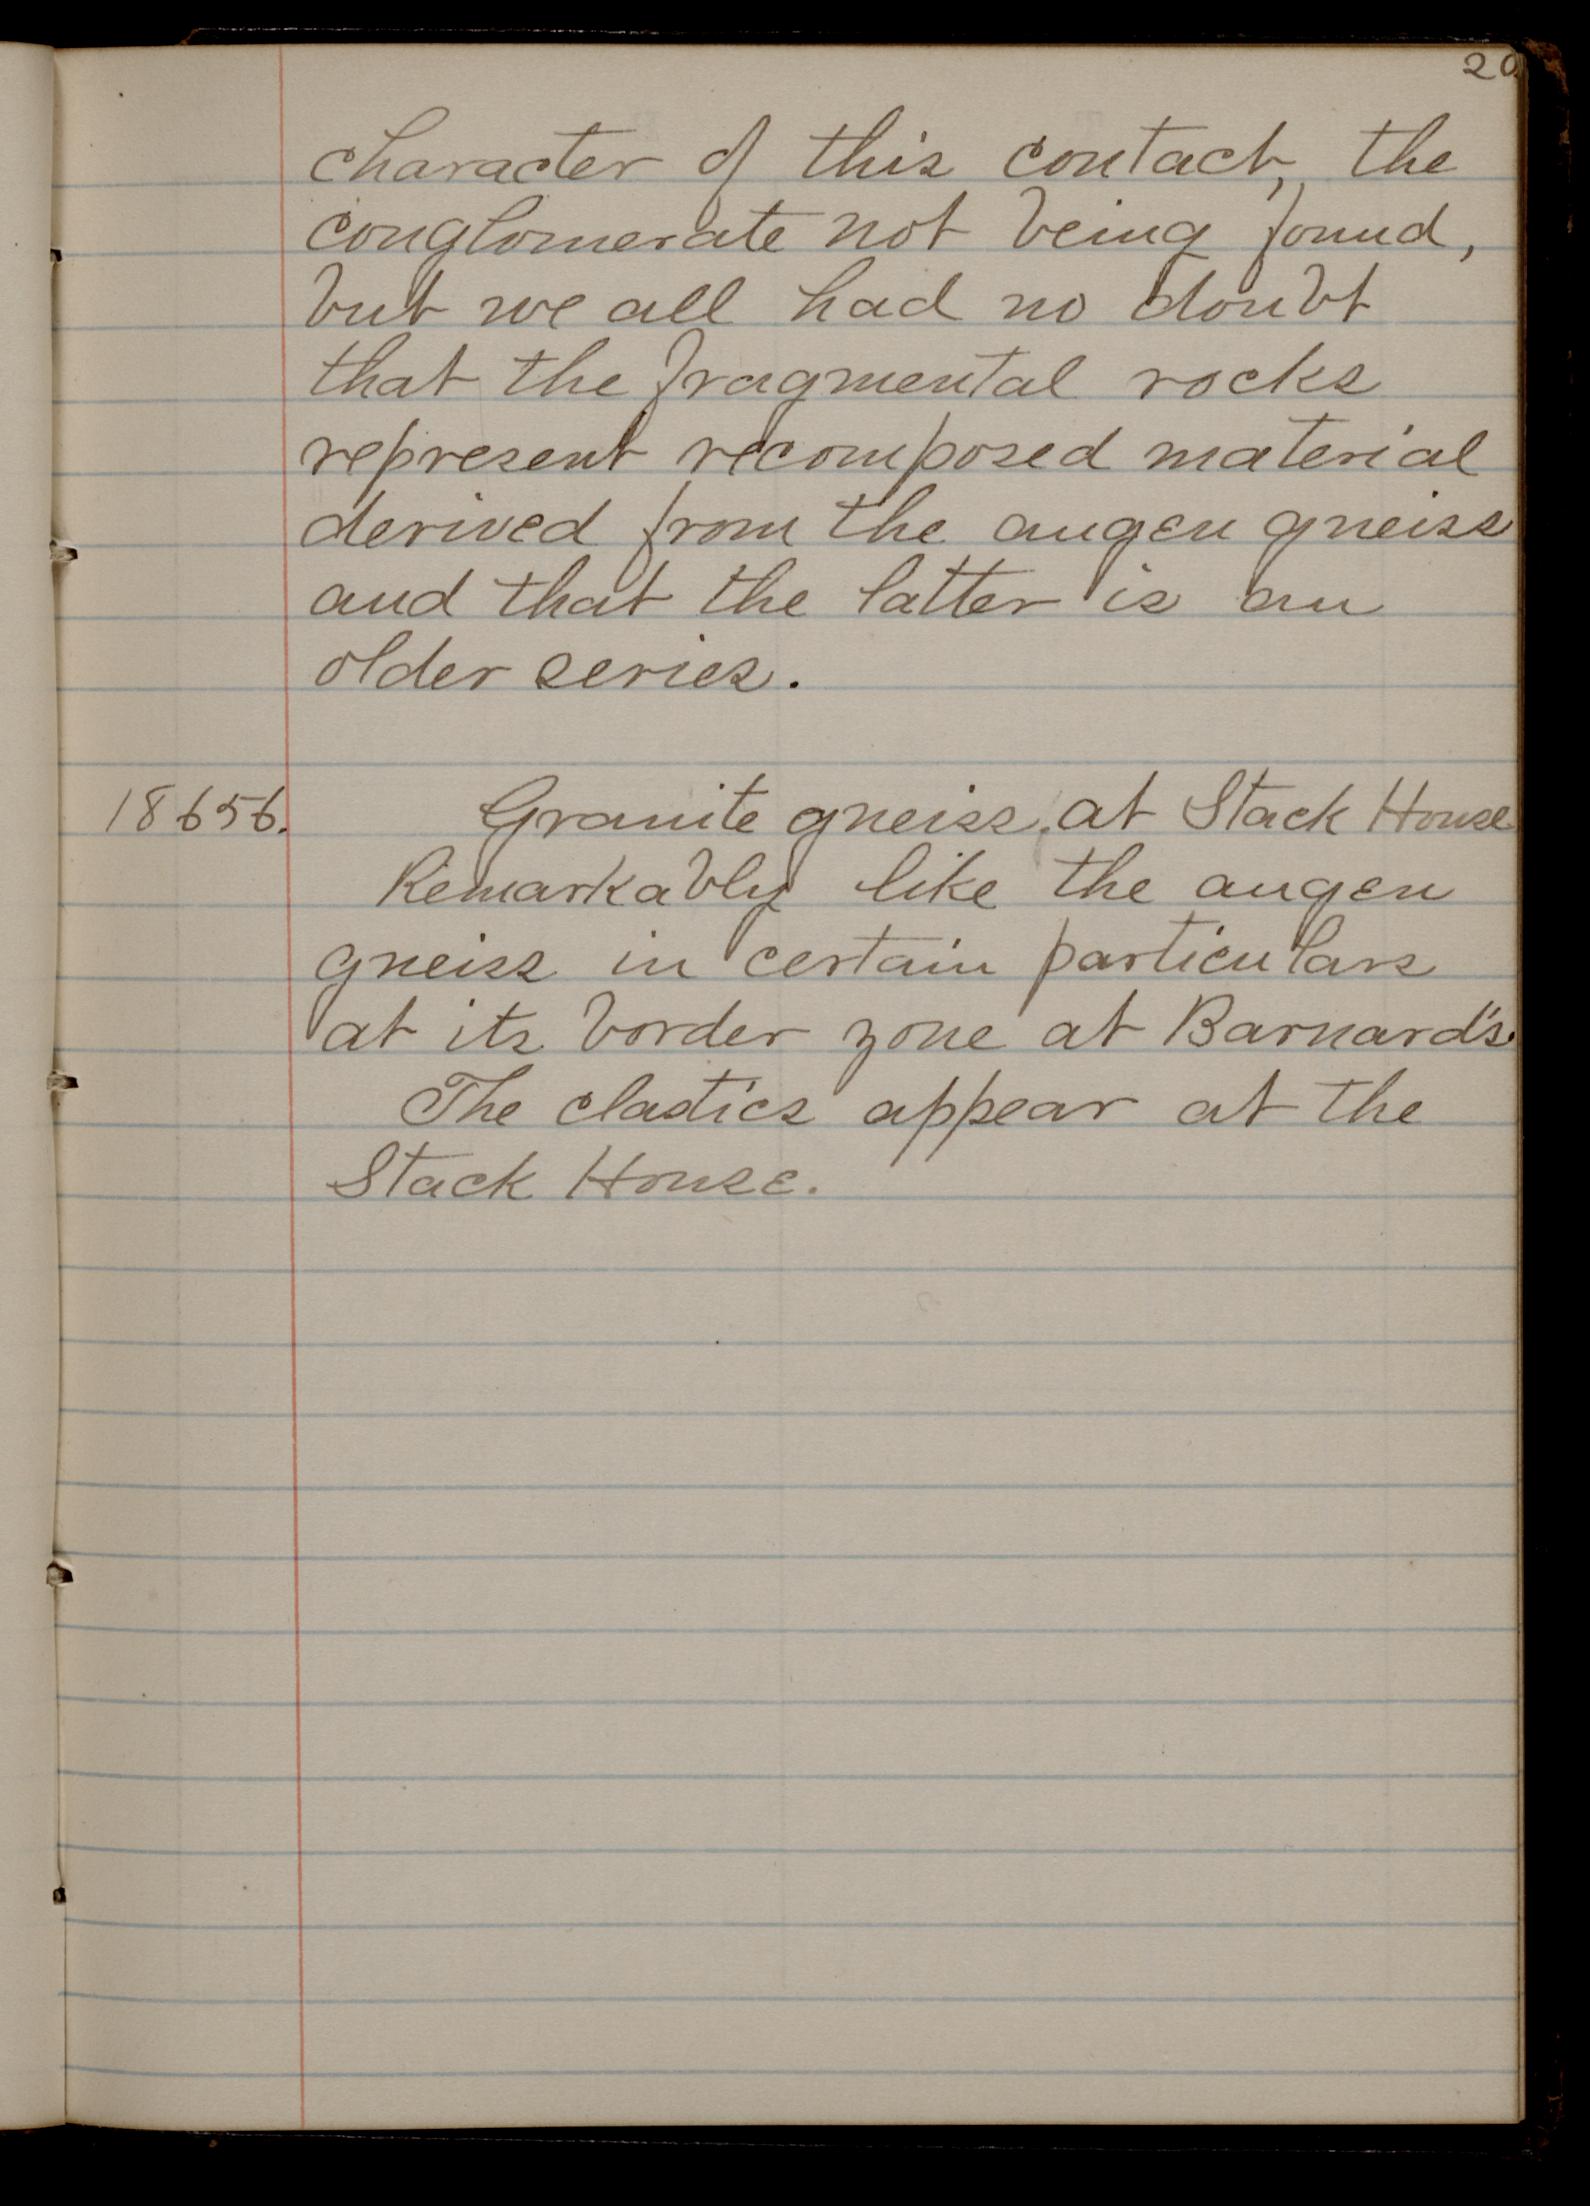 20
character of this contact, the
conglomerate not being found,
but we all had no doubt
that the fragmental rocks
represent recomposed material
derived from the augen gneiss
and that the latter is an
older series.
18656. Granite gneiss, at Stack House
Remarkably like the augen
gneiss in certain particulars
at its border zone at Barnard's.
The clastics appear at the
Stack House.